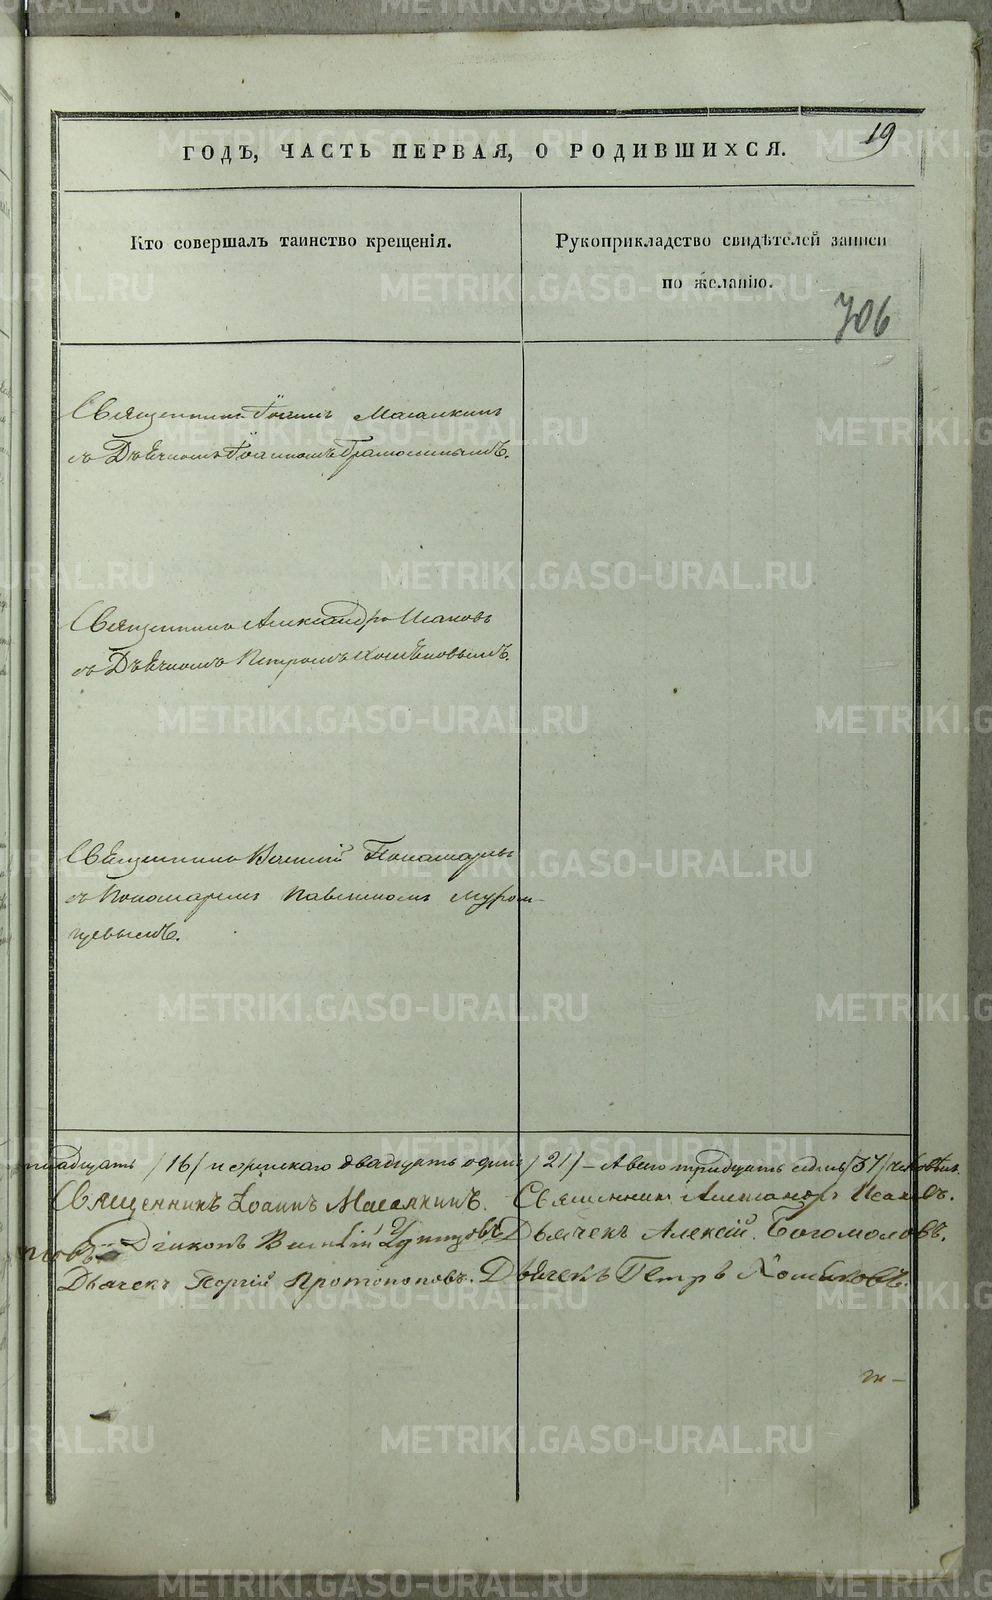 19
ГОДЪ, ЧАСТЬ ПЕРВАЯ, О РОДИВШИХСЯ.
Кто совершалъ таинство крещенія.
Рукоприкладство свидѣтелей записи
по желанію.
706
Священникъ Іоаннъ Масалкинъ
съ Дьячкомъ Іоанномъ
Священникъ Александръ Исаковъ
съ Дьячкомъ Петромъ Хомяковымъ.
Священникъ Василій Пономаревъ
съ Пономаремъ Павлиномъ Муром-
цевымъ.
надцать /16/ и женскаго двадцать одинъ /21/ – А всего тридцать семь /37/ человѣкъ.
Священникъ Іоаннъ Масалкинъ. Священникъ Александръ Исаковъ.
Діаконъ Василій Удинцовъ Дьячекъ Алексій Богомоловъ.
Дьячекъ Георгій Протопоповъ. Дьячекъ Петръ Хомяковъ.
METRIKI.GASO-URAL.RU